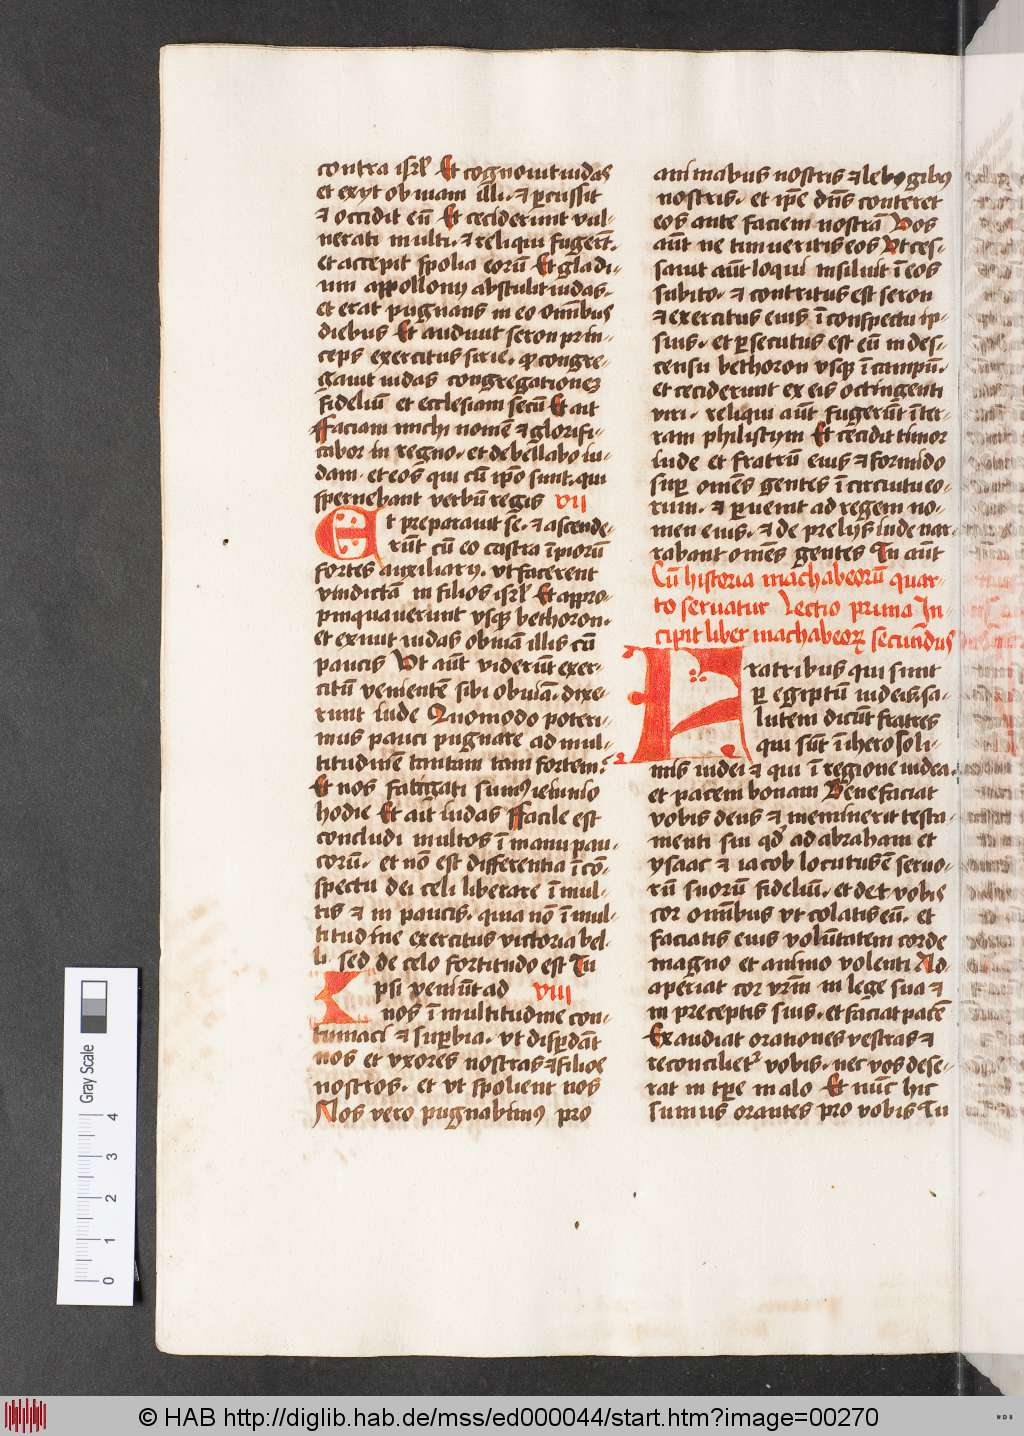 contra isrl̄ Et cognouit iudas
et exijt obuiam illi · ⁊ ꝑcussit
⁊ occidit eū Et ceciderunt vul-
nerati multi · ⁊ reliqui fugerūt ·
et accepit spolia eorū Et gladi-
um appollonij abstulit iudas ·
et erat pugnans in eo om̄ibus
diebus Et audiuit seron prin-
ceps exercitus sirie · ꝙ congre-
gauit iudas congregationeꝫ
fideliū et ecclesiam secū Et ait
Ffaciam michi nomē ⁊ glorifi-
cabor in regno · et debellabo iu-
dam · et eos qui cū ip̄o sunt · qui
spernebant verbū regis VII
Et preparauit se · ⁊ ascende-
rūt cū eo castra īpiorū
fortes auxiliarij · vt facerent
vindictā in filios isrl̄ Et appro-
pinquauerunt vsqꝫ bethoron ·
et exiuit iudas obuiā illis cū
paucis Vt aūt viderūt exer-
citū venientē sibi obuiā · dixe-
runt iude Quomodo poteri-
mus pauci pugnare ad mul-
titudinē tantam tam fortem ·
Et nos fatigati sumꝰ ieiunio
hodie Et ait iudas Ffacile est
concludi multos ī manu pau-
corū · et nō est differentia ī cō-
spectu dei celi liberare ī mul-
tis ⁊ in paucis · quia nō ī mul-
titudine exercitus victoria bel-
li sed de celo fortitudo est Tu
Ipsi veniūt ad VIII
nos ī multitudine con-
tumaci ⁊ suꝑbia · vt disꝑdāt
nos et vxores nostras ⁊ filios
nostros · et vt spolient nos
Nos vero pugnabimꝰ pro
animabus nostris ⁊ lebogibꝰ
nostris · et ip̄e dn̄s conteret
eos ante faciem nostrā Vos
aūt ne timueritis eos Vt ces-
sauit aūt loqui insiluit ī eos
subito · ⁊ contritus est seron
⁊ exercitus eius ī conspectu ip-
sius · et ꝑsecutus est eū in des-
censu bethoron vsqꝫ ī campū ·
et ceciderunt ex eis octingenti
viri · reliqui aūt fugerūt ī ter-
ram philistijm Et cecidit timor
iude et fratrū eius ⁊ formido
suꝑ omēs gentes ī circuitu eo-
rum · ⁊ ꝑuenit ad regem no-
men eius · ⁊ de prelijs iude nar-
rabant omēs gentes Tu aūt
Cū historia machabeorū quar-
to seruatur Lectio prima In-
cipit liber machabeoꝝ secundus
Fratribus qui sunt
ꝑ egiptū iudeis sa-
lutem dicūt fratres
qui sūt ī iherosoli-
mis iudei ⁊ qui ī regione iudea ·
et pacem bonam Benefaciat
vobis deus ⁊ meminerit testa-
menti sui qd̄ ad abraham et
ysaac ⁊ iacob locutus ē seruo-
rū suorū fideliū · et det vobis
cor om̄ibus vt colatis eū · et
faciatis eius volūtatem corde
magno et animo volenti Ad-
aperiat cor vr̄m in lege sua ⁊
in preceptis suis · et faciat pacē
Exaudiat orationes vestras ⁊
reconcilietᷣ vobis · nec vos dese-
rat in tꝑe malo Et nūc hic
sumus orantes pro vobis Tu
Gray Scale
4
3
2
1
0
© HAB http://diglib.hab.de/mss/ed000044/start.htm?image=00270